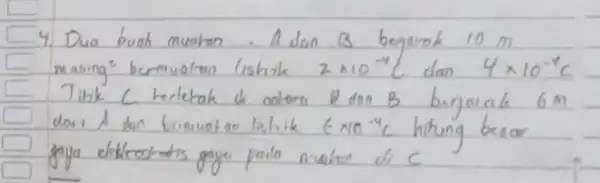 4. Dua buah muatan . A dan B berjarak 10 m
masing² bermuatan listrik 2 x 10⁻⁴ C dan 4 x 10⁻⁴ C
Titik C terletak di antara A dan B berjarak 6 m
dari A dan bermuatan listrik 6 x 10⁻⁴ C hitung besar
gaya elektrostatis gaya pada muatan di C